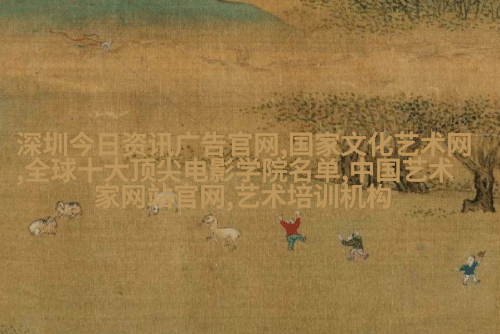 深圳今日资讯广告官网,国家文化艺术网
,全球十大顶尖电影学院名单,中国艺术
家网站官网,艺术培训机构